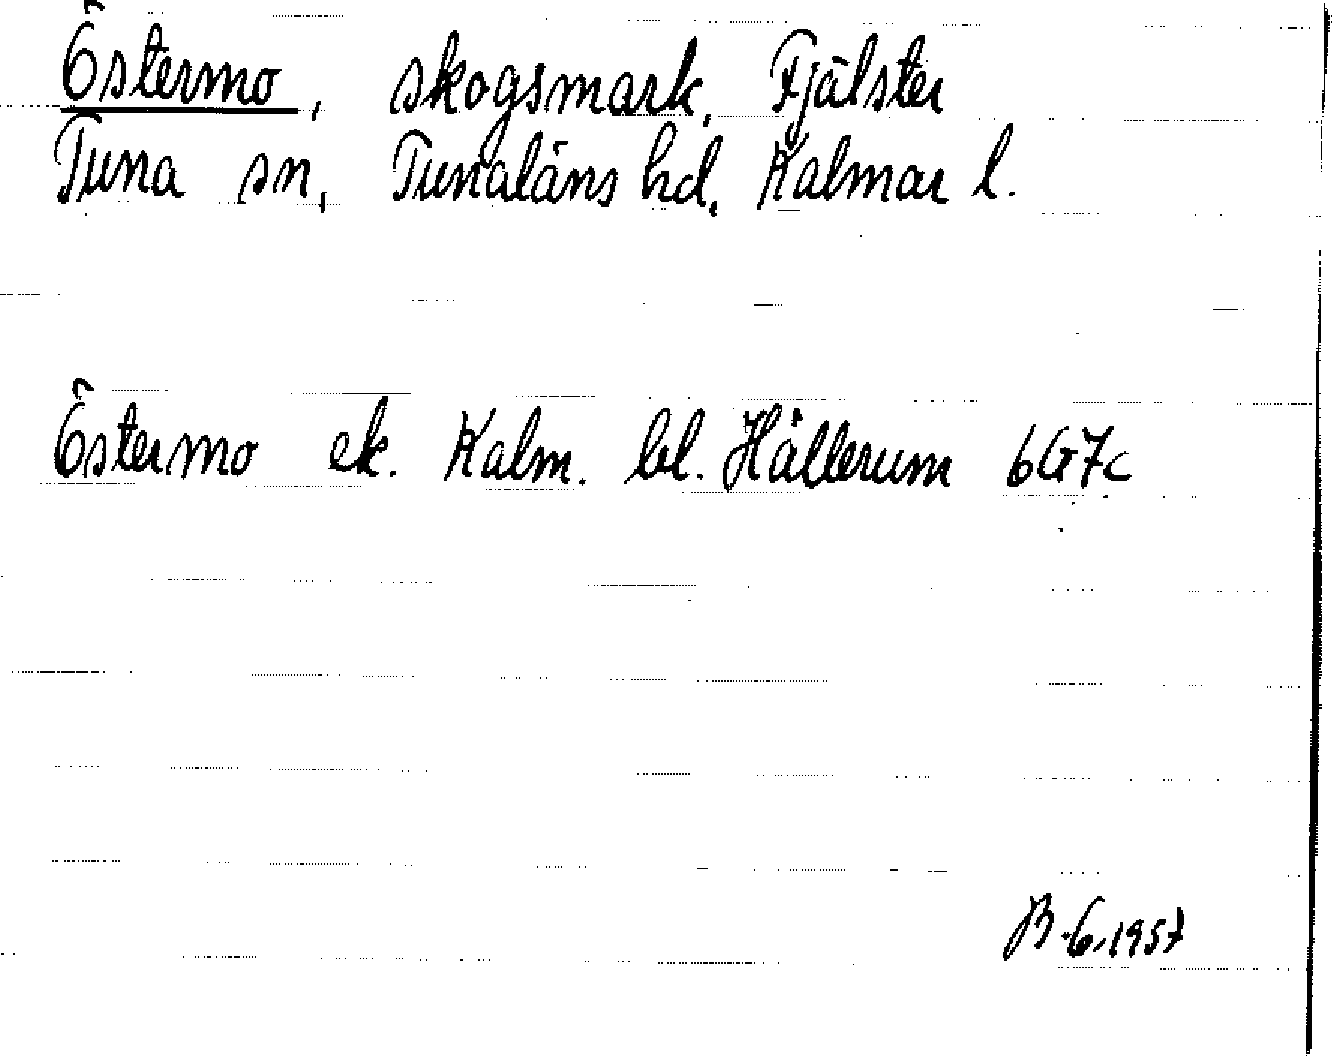 Östermo, skogsmark, Fjälster
Tuna sn, Tunaläns hd, Kalmar l.
Östermo ek. Kalm. bl. Hällerum 6G7c
B.G.1957